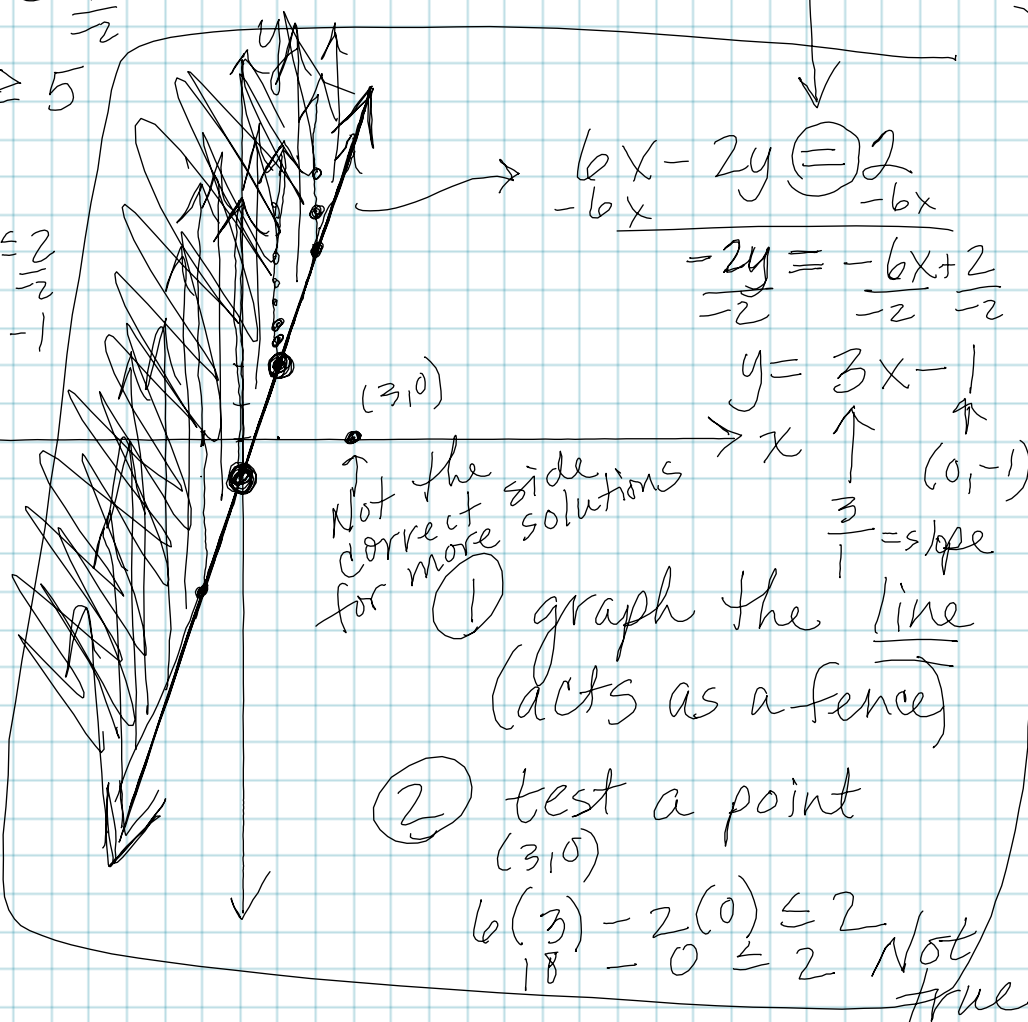 -2
≥ 5
y
6x - 2y = 2
-6x -6x
≤ 2
-2
-2y = -6x + 2
-2 -2 -2
-1
y = 3x - 1
(3,0)
x
(0,-1)
Not the
correct side
for more solutions
3
1 = slope
① graph the line
(acts as a fence)
② test a point
(3,0)
6(3) - 2(0) ≤ 2
18 - 0 ≤ 2 Not
true